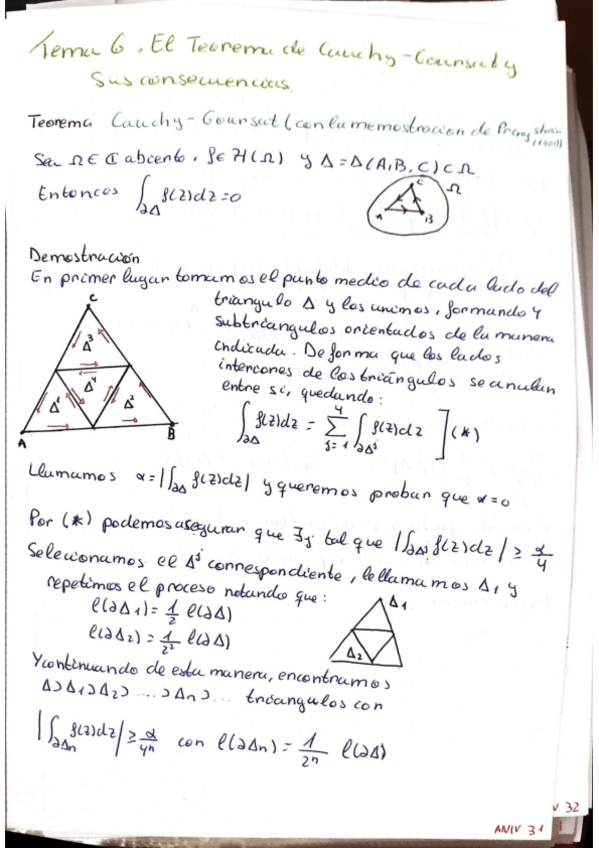 Tema 6. El Teorema de Cauchy-Goursat y
sus consecuencias.
Teorema Cauchy-Goursat (con la memostracion de Pringsheim
(1900))
Sea Ω ∈ ℂ abierto, f ∈ H(Ω) y Δ = Δ(A,B,C) ⊂ Ω.
Entonces ∫∂Δ f(z)dz = 0
C
Ω
A
B
Demostración
En primer lugar tomamos el punto medio de cada lado del
triángulo Δ y los unimos, formando 4
subtriangulos orientados de la manera
indicada. De forma que los lados
interiores de los triángulos se anulan
entre sí, quedando:
C
Δ³
Δ⁴
Δ¹
Δ²
A
B
∫∂Δ f(z)dz = Σ_{j=1}^{4} ∫∂Δʲ f(z)dz ] (*)
Llamamos α = |∫∂Δ f(z)dz| y queremos probar que α = 0
Por (*) podemos asegurar que ∃j tal que |∫∂Δʲ f(z)dz| ≥ α/4
Selecionamos el Δʲ correspondiente, le llamamos Δ₁ y
repetimos el proceso notando que:
l(∂Δ₁) = 1/2 l(∂Δ)
l(∂Δ₂) = 1/2² l(∂Δ)
Δ₁
Δ₂
Y continuando de esta manera, encontramos
Δ ⊃ Δ₁ ⊃ Δ₂ ⊃ .... ⊃ Δn ⊃ ... triangulos con
|∫∂Δn f(z)dz| ≥ α/4ⁿ con l(∂Δn) = 1/2ⁿ l(∂Δ)
V 32
ANIV 31